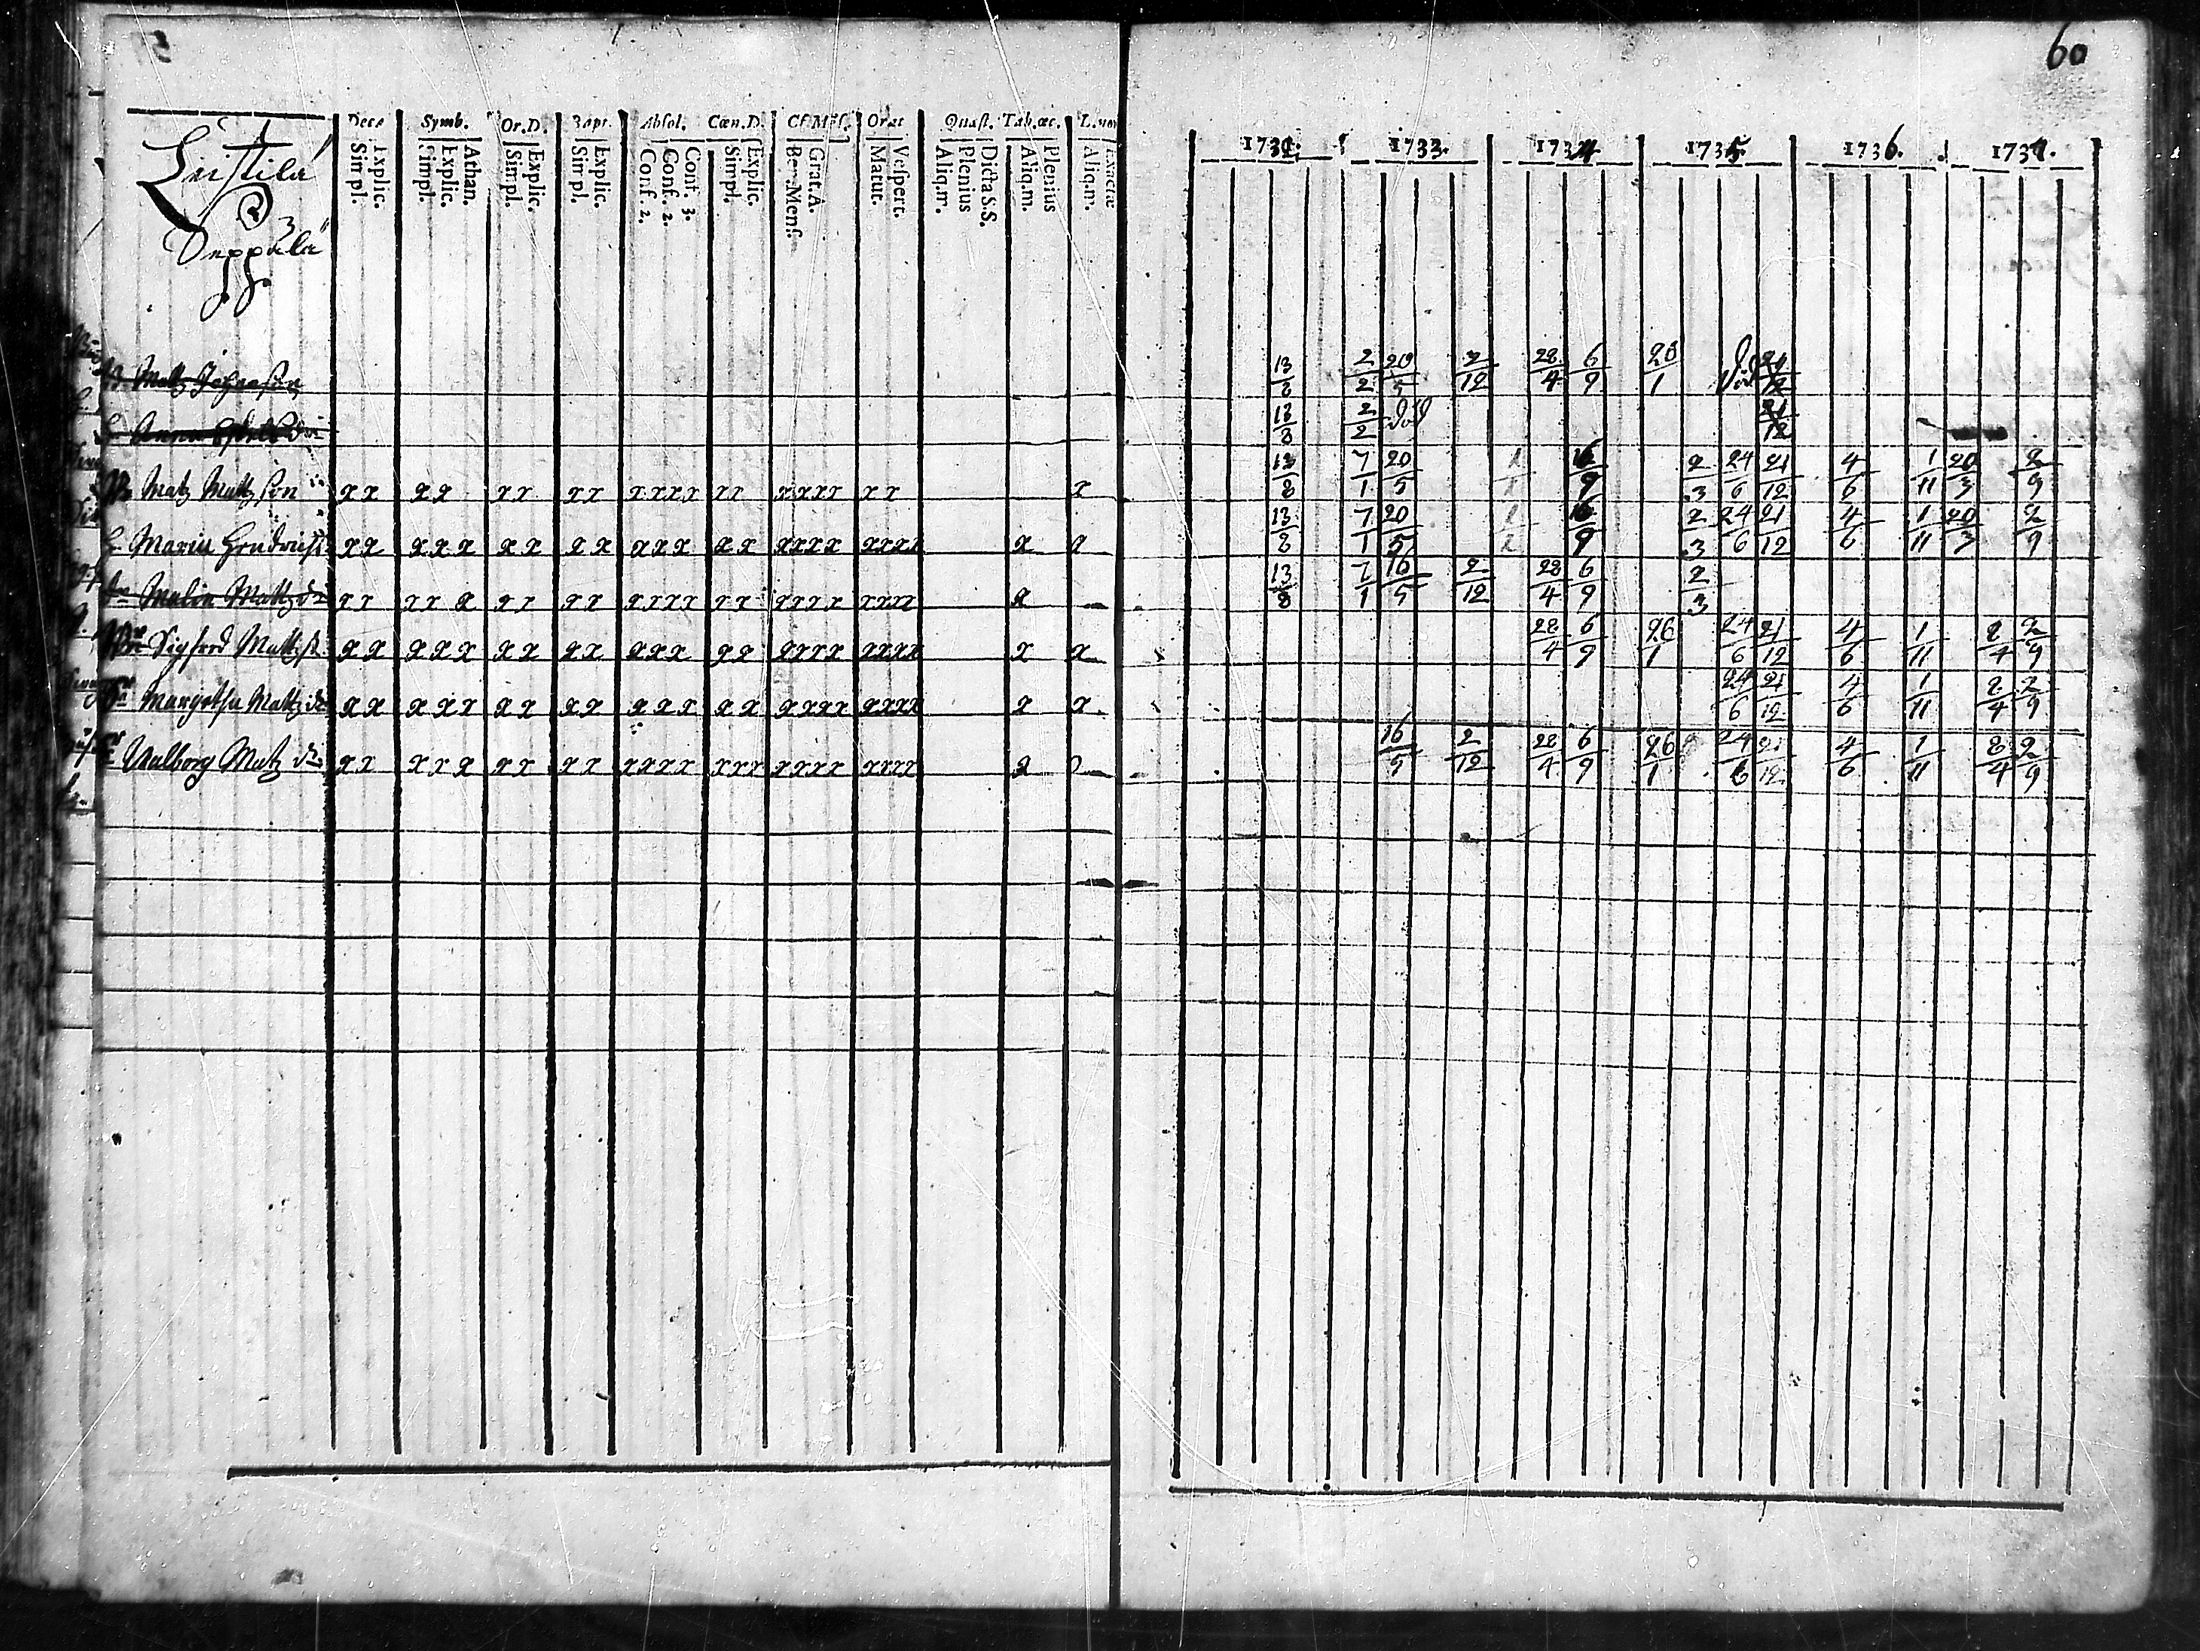 60
Leistilä
Seppälä
Decs Symb. Or.D. Bapt. Absol. Cœn.D. Cf.Mis. Orat Quæst. Tab.œc. L.nov
Explic. Simpl. Athan. Explic. Simpl. Explic. Simpl. Explic. Simpl. Conf. 3. Conf. 2. Conf. 2. Explic. Simpl. Grat.A. Ben.Mens. Vespert. Matut. Dicta S.S. Plenius Aliq.m. Plenius Aliq.m. Exactæ Aliq.m.
1732. 1733. 1734 1735. 1736. 1737.
Matz Johansson 13/8 2/2 20/5 2/12 28/4 6/9 26/1 död 21/12
Anna 13/8 2/2 död 21/12
Matz Mattsson x x x x x x x x x x x x x x x x x x x x x 13/8 7/1 20/5 16/9 2/3 24/6 21/12 4/6 1/11 20/3 2/9
H. Maria Hendrichsd x x x x x x x x x x x x x x x x x x x x x x x x 13/8 7/1 20/5 16/9 2/3 24/6 21/12 4/6 1/11 20/3 2/9
Malin Mattzd x x x x x x x x x x x x x x x x x x x x x x x x 13/8 7/1 16/5 2/12 28/4 6/9 2/3
Sigfred Mattss x x x x x x x x x x x x x x x x x x x x x x x x 28/4 6/9 26/1 24/6 21/12 4/6 1/11 8/4 2/9
Margetha Mattzd x x x x x x x x x x x x x x x x x x x x x x x x 24/6 21/12 4/6 1/11 8/4 2/9
Walborg Matzd x x x x x x x x x x x x x x x x x x x x x x x x 16/5 2/12 28/4 6/9 26/1 24/6 21/12 4/6 1/11 8/4 2/9